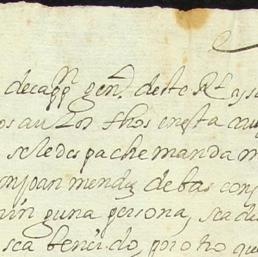 de cappn genl deste Rl y su
os autos fhos en esta ciu
se le despache manda m
on joan mendz de bas con
ninguna persona, sea de
sea bencido, por o ho que